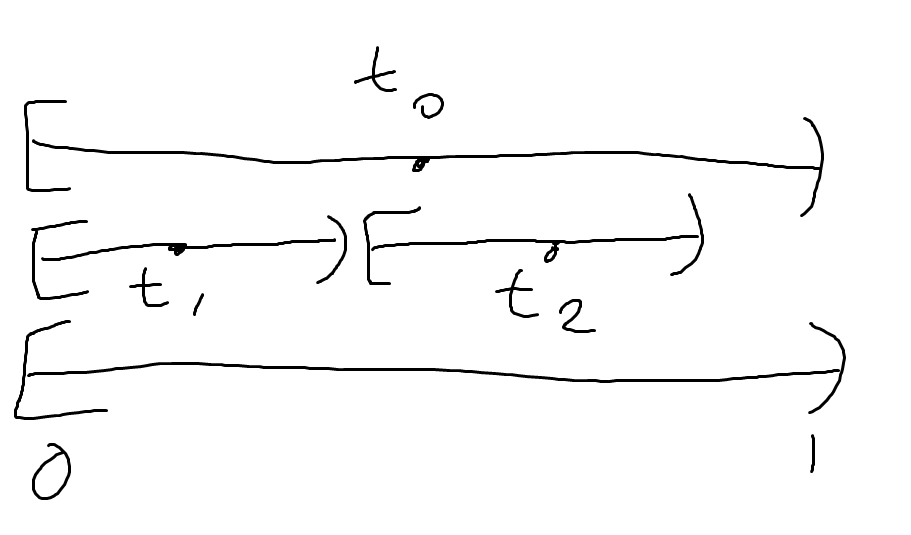 t₀
[ )
[ ) [ )
t₁ t₂
[ )
0 1